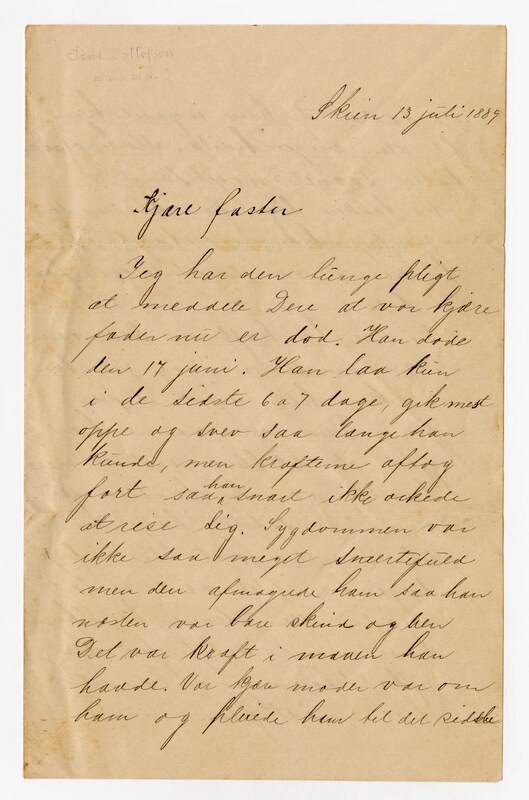 Skien 13 juli 1889
Kjære faster
Jeg har den tunge pligt
at meddele Dere at vor kjære
fader nu er død. Han døde
den 17 juni. Han laa kun
i de sidste 6 a 7 dage, gik mest
oppe og svev saa lange han
kunde, men kræfterne aftog
fort saa han snart ikke orkede
at reise sig. Sygdommen var
ikke saa meget smertefuld
men den afmagrede ham saa han
næsten var bare skind og ben
Det var kræft i maven han
havde. Vor kjære moder var om
ham og pleiede ham til det sidste